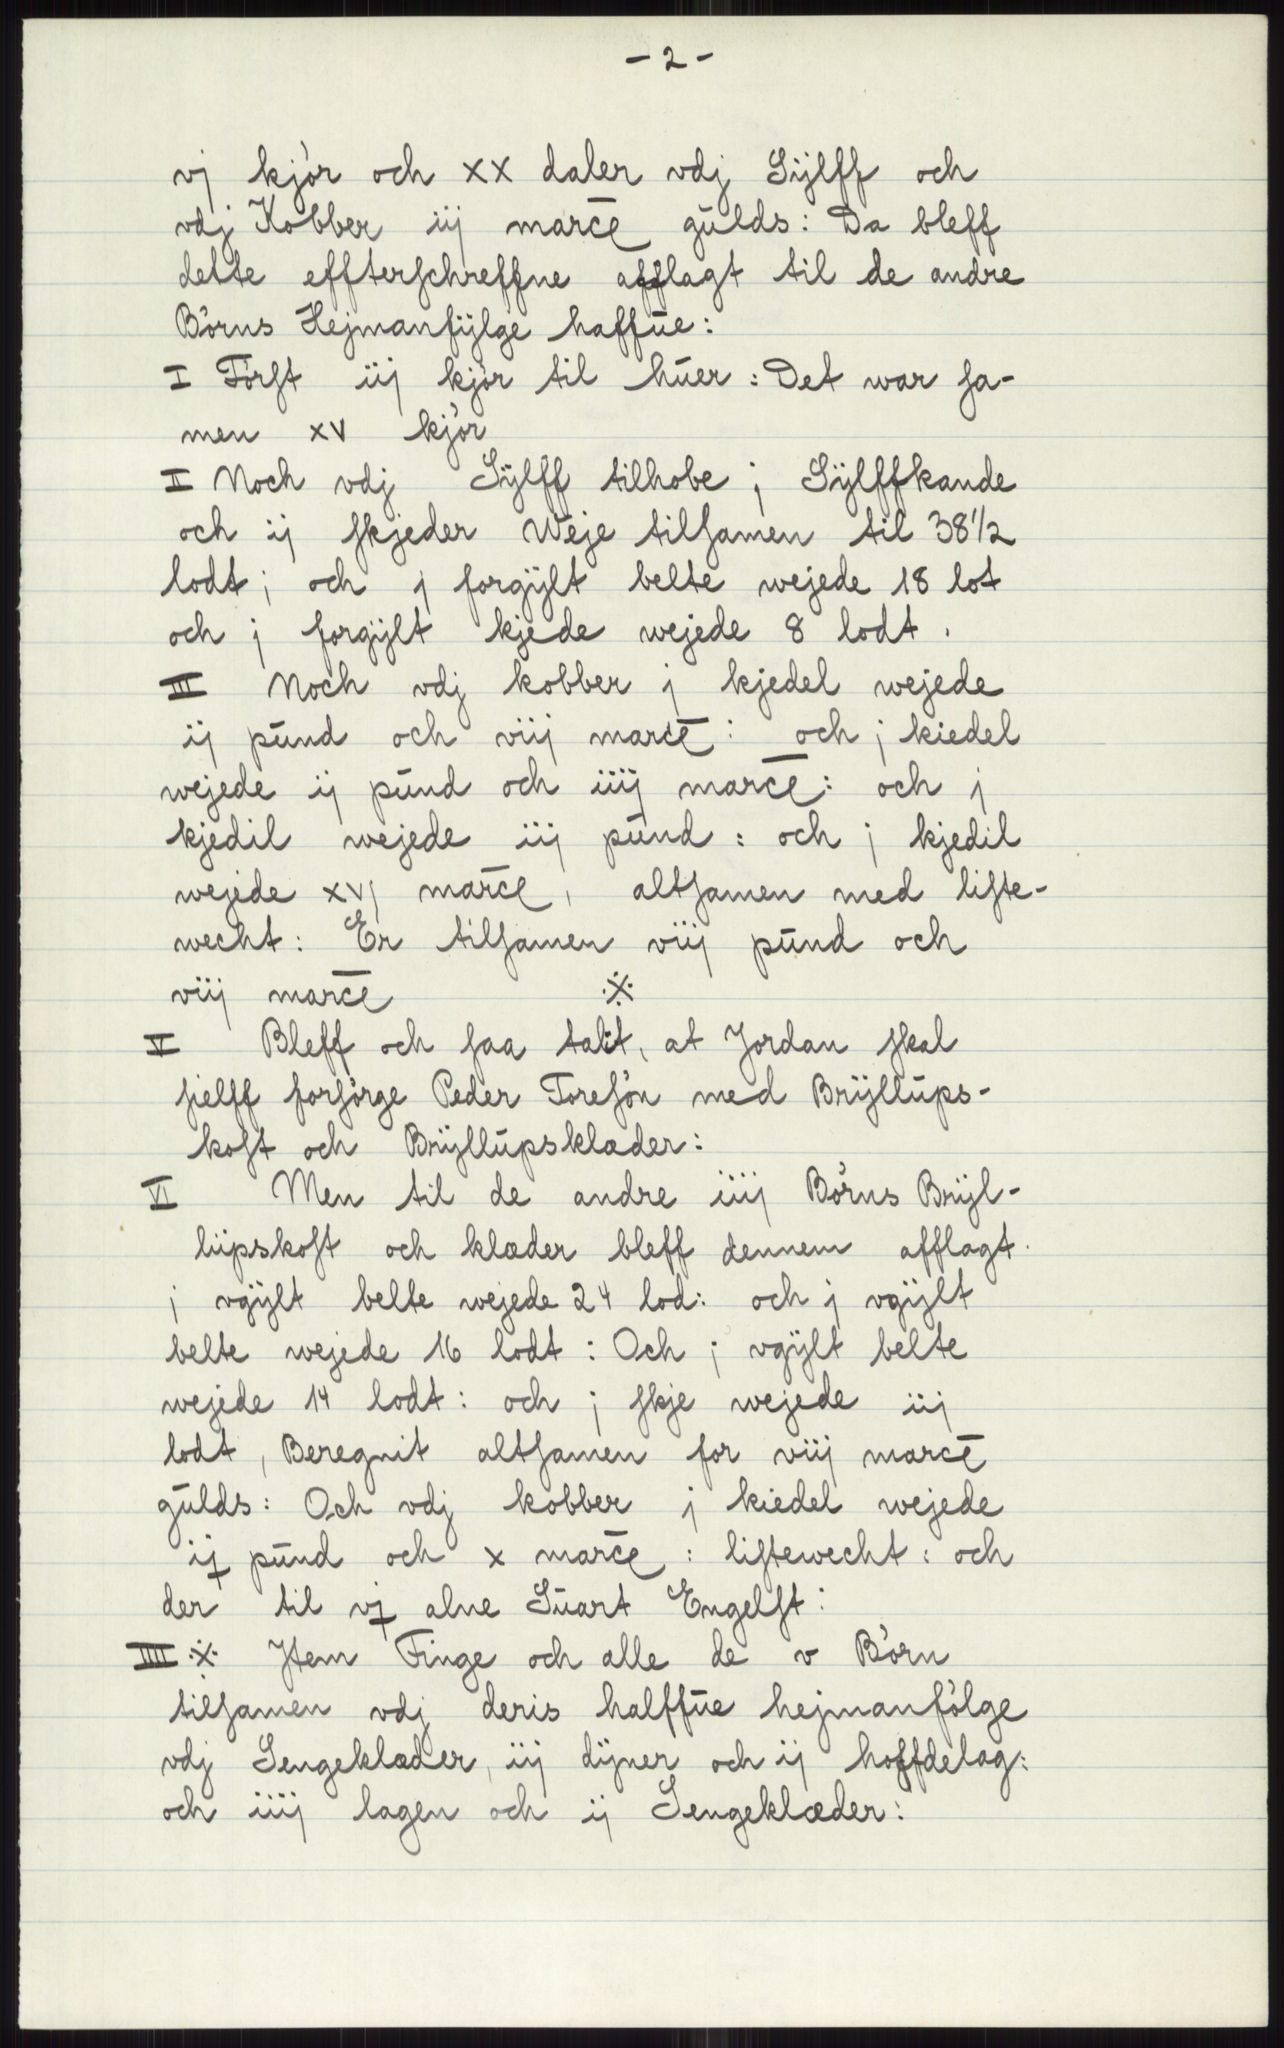 - 2 -
vj kjór och xx daler vdj Sÿlff och
vdj Kobber iij marcē gūlds: Da bleff
dette effterschreffne afflagt til de andre
Börns Hejmanfÿlge haffūe:
I Först iij kjör til hūer: Det war sa-
men xv kjör
II Noch vdj Sÿlff tilhobe j Sÿlffkande
och ij skjeder Weje tilsamen til 38 1/2
lodt; och j forgÿlt belte wejede 18 lot
och j forgÿlt kjede wejede 8 lodt.
III Noch vdj kobber j kjedel wejede
ij pūnd och viij marcē: och j kiedel
wejede ij pūnd och iiij marcē: och j
kjedil wejede iij pūnd: och j kjedil
wejede xvj marcē, altsamen med liste-
wecht: Er tilsamen viij pūnd och
viij marcē ※
V Bleff och saa talit, at Jordan skal
sielff forsörge Peder Toresön med Brÿllūps-
kost och Brÿllūpsklæder:
VI Men til de andre iiij Börns Brÿl-
lūpskost och klæder bleff dennem afflagt.
j vgÿlt belte wejede 24 lod: och j vgÿlt
belte wejede 16 lodt: Och j vgÿlt belte
wejede 14 lodt: och j skje wejede iij
lodt, Beregnit altsamen for viij marcē
gūlds: Och vdj kobber j kiedel wejede
ij pūnd och x marcē: listewecht: och
der til vj alne Sūart Engelst:
IIII ※ Jtem Finge och alle de v Börn
tilsamen vdj deris halffūe hejmanfölge
vdj Sengeklæder, iij dÿner och ij hoffdelag:
och iiij lagen och ij Sengeklæder: